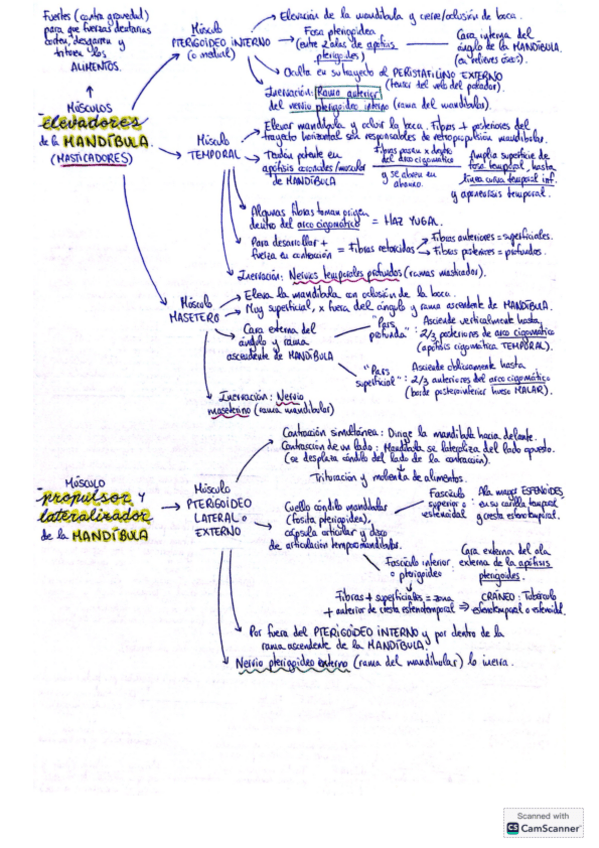 Fuertes (contra gravedad)
para que fuerzas dentarias
corten, desgarren y
trituren los
ALIMENTOS.
MÚSCULOS
elevadores
de la MANDÍBULA.
(MASTICADORES)
Músculo
PTERIGOIDEO INTERNO
(o medial)
Elevación de la mandíbula y cierre/oclusión de boca.
Fosa pterigoidea
(entre 2 alas de apófisis
pterigoides)
Cara interna del
ángulo de la MANDÍBULA.
(en relieves óseos).
Oculta en su trayecto al PERISTAFILINO EXTERNO
(tensor del velo del paladar).
Inervación: Ramo anterior
del nervio pterigoideo interno (rama del mandibular).
Músculo
TEMPORAL
Elevar mandíbula y ocluir la boca. Fibras + posteriores del
trayecto horizontal son responsables de retropulsión mandibular.
Tendón potente en
apófisis coronoides/muscular
de MANDÍBULA
Fibras pasan x dentro
del arco cigomático
y se abren en
abanico.
Amplia superficie de
fosa temporal, hasta
línea curva temporal inf.
y aponeurosis temporal.
Algunas fibras toman origen
dentro del arco cigomático = HAZ YUGAL.
Para desarrollar +
fuerza en contracción = Fibras retorcidas
Fibras anteriores = superficiales.
Fibras posteriores = profundas.
Inervación: Nervios temporales profundos (ramas masticador).
Músculo
MASETERO
Eleva la mandíbula con oclusión de la boca.
Muy superficial, x fuera del ángulo y rama ascendente de MANDÍBULA.
Cara externa del
ángulo y rama
ascendente de MANDÍBULA
"Pars
profunda" :
Asciende verticalmente hasta
2/3 posteriores de arco cigomático
(apófisis cigomática TEMPORAL).
"Pars
superficial" :
Asciende oblicuamente hasta
2/3 anteriores del arco cigomático
(borde posteroinferior hueso MALAR).
Inervación: Nervio
maseterino (rama mandibular)
MÚSCULO
propulsor y
lateralizador
de la MANDÍBULA
Músculo
PTERIGOIDEO
LATERAL o
EXTERNO
Contracción simultánea: Dirige la mandíbula hacia delante.
Contracción de un lado: Mandíbula se lateraliza del lado opuesto.
(se desplaza cóndilo del lado de la contracción).
Trituración y molienda de alimentos.
Cuello cóndilo mandibular
(fosita pterigoidea),
cápsula articular y disco
de articulación temporomandibular.
Fascículo
superior o :
esfenoidal
Ala mayor ESFENOIDES,
en su carilla temporal
y cresta esfenotemporal.
Fascículo inferior
o pterigoideo :
Cara externa del ala
externa de la apófisis
pterigoides.
Fibras + superficiales = zona
+ anterior de cresta esfenotemporal ⇒
CRÁNEO: Tubérculo
esfenotemporal o esfenoidal.
Por fuera del PTERIGOIDEO INTERNO y por dentro de la
rama ascendente de la MANDÍBULA.
Nervio pterigoideo externo (rama del mandibular) lo inerva.
Scanned with
CS CamScanner